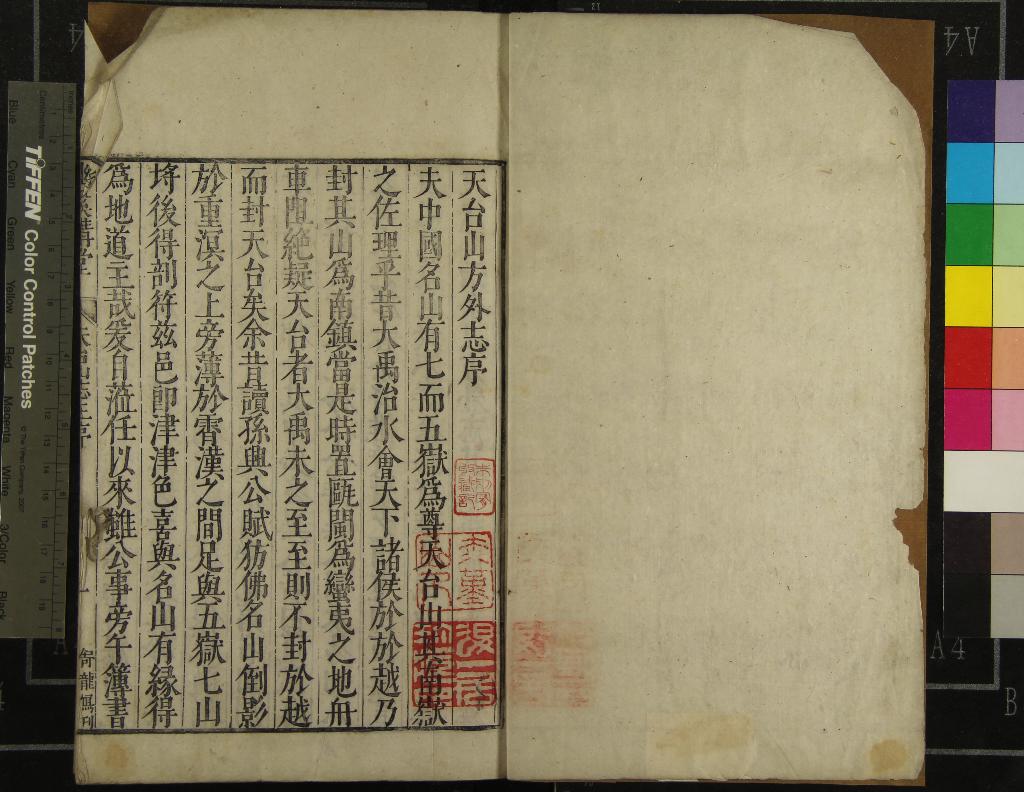 天台山方外志序
夫中國名山有七而五嶽爲尊天台山其南嶽
之佐理乎昔大禹治水會天下諸侯於於越乃
封其山爲南鎮當是時置甌閩爲蠻夷之地舟
車阻絶疑天台者大禹未之至至則不封於越
而封天台矣余昔讀孫興公賦彷佛名山倒影
於重溟之上旁薄於霄漢之間足與五嶽七山
埒後得剖符兹邑卽津津色喜與名山有緣得
爲地道主哉爰自蒞任以來雖公事旁午簿書
TIFFEN Color Control Patches
© The Tiffen Company, 2007
Centimetres
Inches
Blue
Cyan
Green
Yellow
Red
Magenta
White
3/Color
Black
A4
A4
B